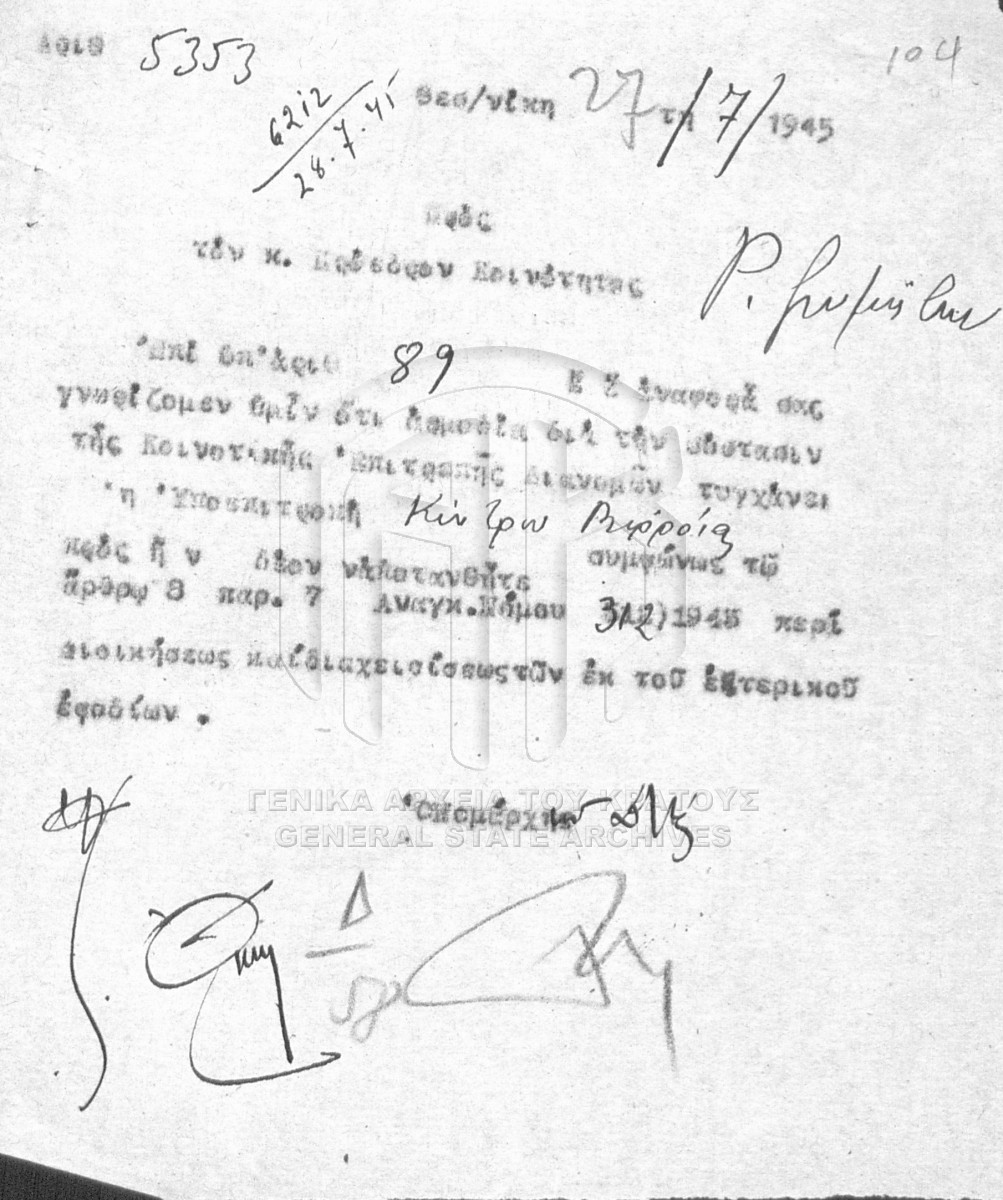 Αριθ 5353
104
6212
28.7.45
Θεσ/νίκη 27 τη/7/1945
Πρός
τόν κ. Πρόεδρον Κοινότητος
Ἐπί ὑπ'ἀριθ 89 Ε Ζ ἀναφορᾶ σας
γνωρίζομεν ὑμῖν ὅτι ἁρμοδία διά τήν σύστασιν
τῆς Κοινοτικῆς Ἐπιτροπῆς Διανομῶν τυγχάνει
'η Ὑποεπιτροπή Κέντρου Βερροίας
πρός ἥ ν δέον νἀποτανθῆτε συμφώνως τῷ
ἄρθρῳ 8 παρ. 7 Αναγκ.Νόμου 312)1945 περί
διοικήσεως καίδιαχειρίσεωςτῶν ἐκ τοῦ ἐξτερικοῦ
ἐφοδίων .
ΓΕΝΙΚΑ ΑΡΧΕΙΑ ΤΟΥ ΚΡΑΤΟΥΣ
GENERAL STATE ARCHIVES
Ὁ Νομάρχης
Δ